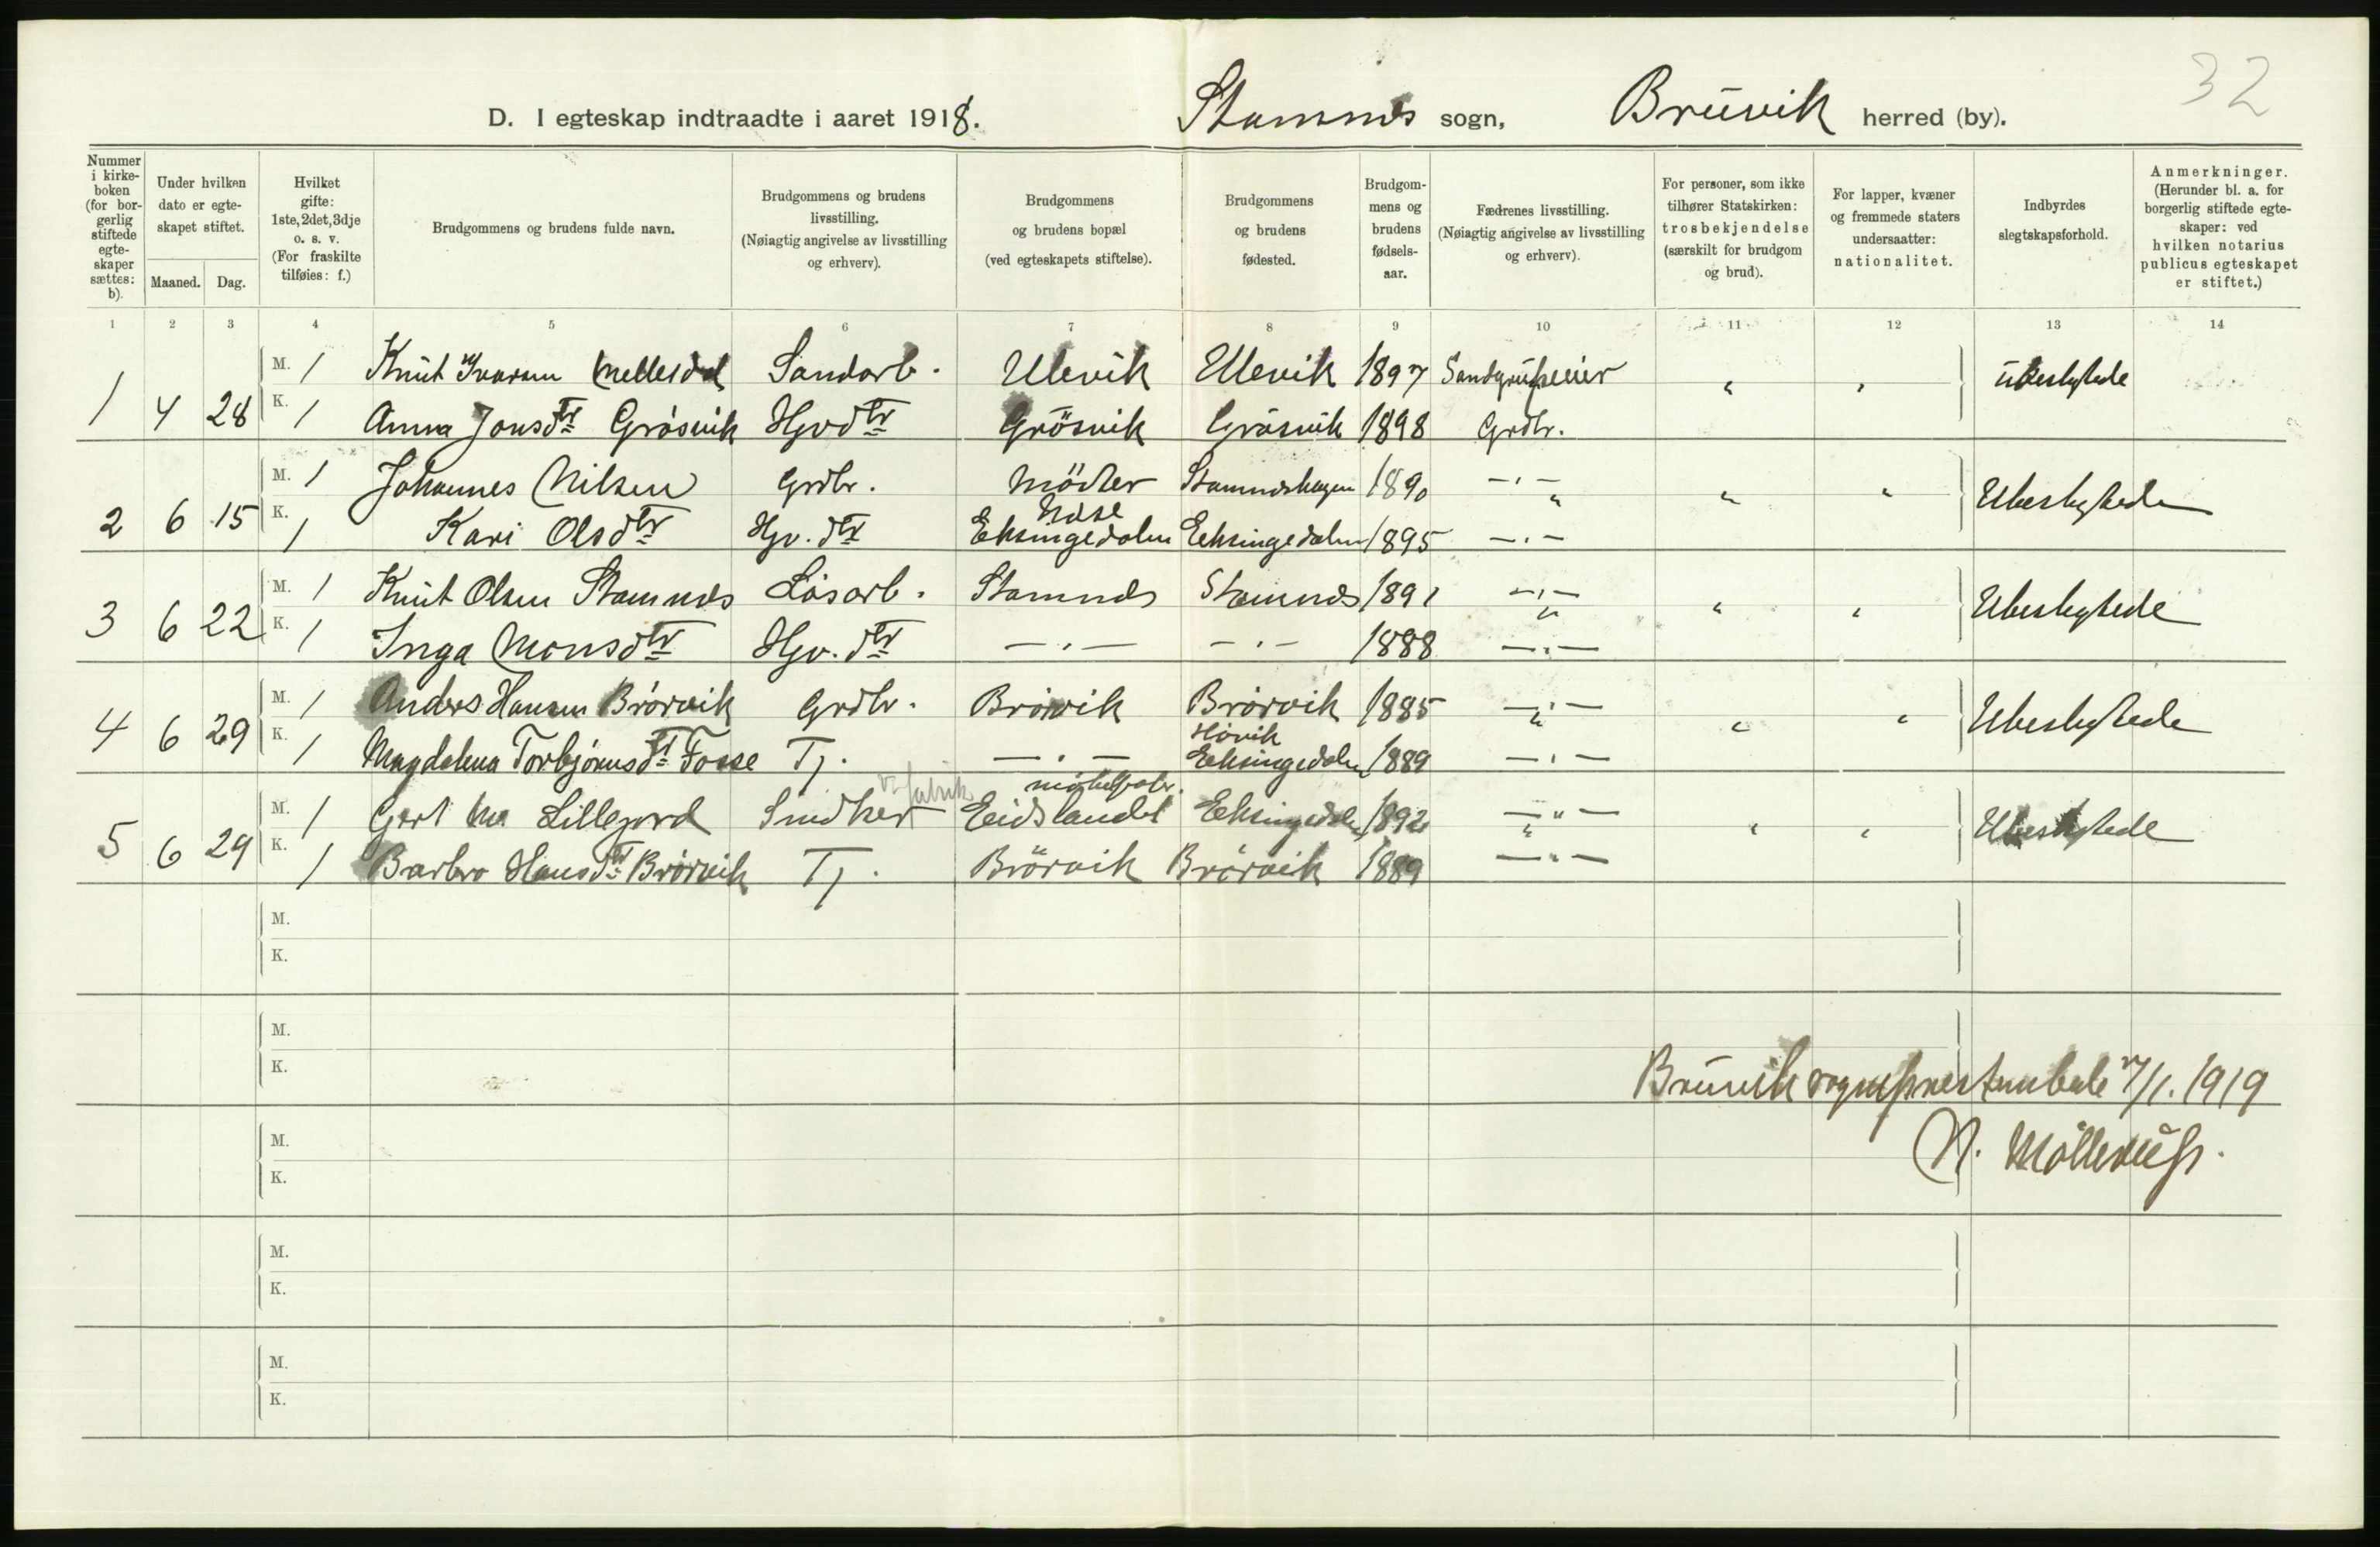 32
D. I egteskap indtraadte i aaret 1918. Stamnes sogn, Bruvik herred (by).
Nummer i kirkeboken (for borgerlig stiftede egteskaper sættes: b).
Under hvilken dato er egteskapet stiftet.
Maaned. Dag.
Hvilket gifte: 1ste, 2det, 3dje o. s. v. (For fraskilte tilføies: f.)
Brudgommens og brudens fulde navn.
Brudgommens og brudens livsstilling. (Nøiagtig angivelse av livsstilling og erhverv).
Brudgommens og brudens bopæl (ved egteskapets stiftelse).
Brudgommens og brudens fødested.
Brudgommens og brudens fødselsaar.
Fædrenes livsstilling. (Nøiagtig angivelse av livsstilling og erhverv).
For personer, som ikke tilhører Statskirken: trosbekjendelse (særskilt for brudgom og brud).
For lapper, kvæner og fremmede staters undersaatter: nationalitet.
Indbyrdes slegtskapsforhold.
Anmerkninger. (Herunder bl. a. for borgerlig stiftede egteskaper: ved hvilken notarius publicus egteskapet er stiftet.)
1 2 3 4 5 6 7 8 9 10 11 12 13 14
M. 1 Knut Ivarsen Mellesdal Sandarb. Ulevik Ulevik 1897 Sandgrubeeier " " Ubeslegtede
1 4 28 K. 1 Anna Jonsdtr Grøsvik Hjvdtr Grøsvik Grøsvik 1898 Grdbr.
M. 1 Johannes Nilsen Grdbr. Stamneshagen 1890 -"- " " Ubeslegtede
2 6 15 K. 1 Kari Olsdtr Hjv. dtr Eksingedalen Eksingedalen 1895 -"-
M. 1 Knut Olsen Stamnes Løsarb. Stamnes Stamnes 1891 -"- " " Ubeslegtede
3 6 22 K. 1 Inga Monsdtr Hjv. dtr -"- -"- 1888 -"-
M. 1 Anders Hansen Brørvik Grdbr. Brørvik Brørvik 1885 -"- " " Ubeslegtede
4 6 29 K. 1 Magdalena Torbjørnsdtr Fosse Tj. -"- Høvik Eksingedalen 1889 -"-
v. fabrik
M. 1 Gert Lillejord Snedker Eidslandet Eksingedalen 1892 -"- " " Ubeslegtede
5 6 29 K. 1 Barbro Hansdtr Brørvik Tj. Brørvik Brørvik 1889 -"-
M.
K.
M.
K.
Bruvik sogneprestembede 7/1. 1919
M.
N. Møllerup.
K.
M.
K.
M.
K.